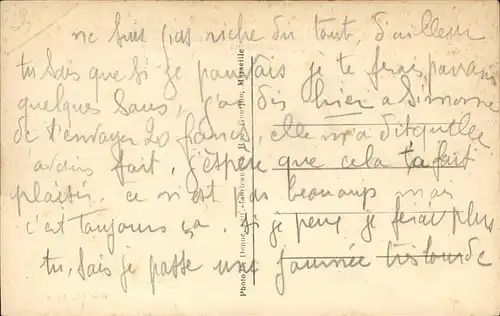 ne suis pas riche du tout, d'ailleur
tu sais que si je pouvais je te ferais parvenir
quelques sous, j'ai dis hier a Simonne
de t'envoyer 20 francs, elle m'a dit qu'elle
avais fait, j'espère que cela ta fait
plaisir, ce n'est pas beaucoup mais
c'est toujours ça, si je peux je ferai plus
tu sais je passe une journée tris lourde
Marseille